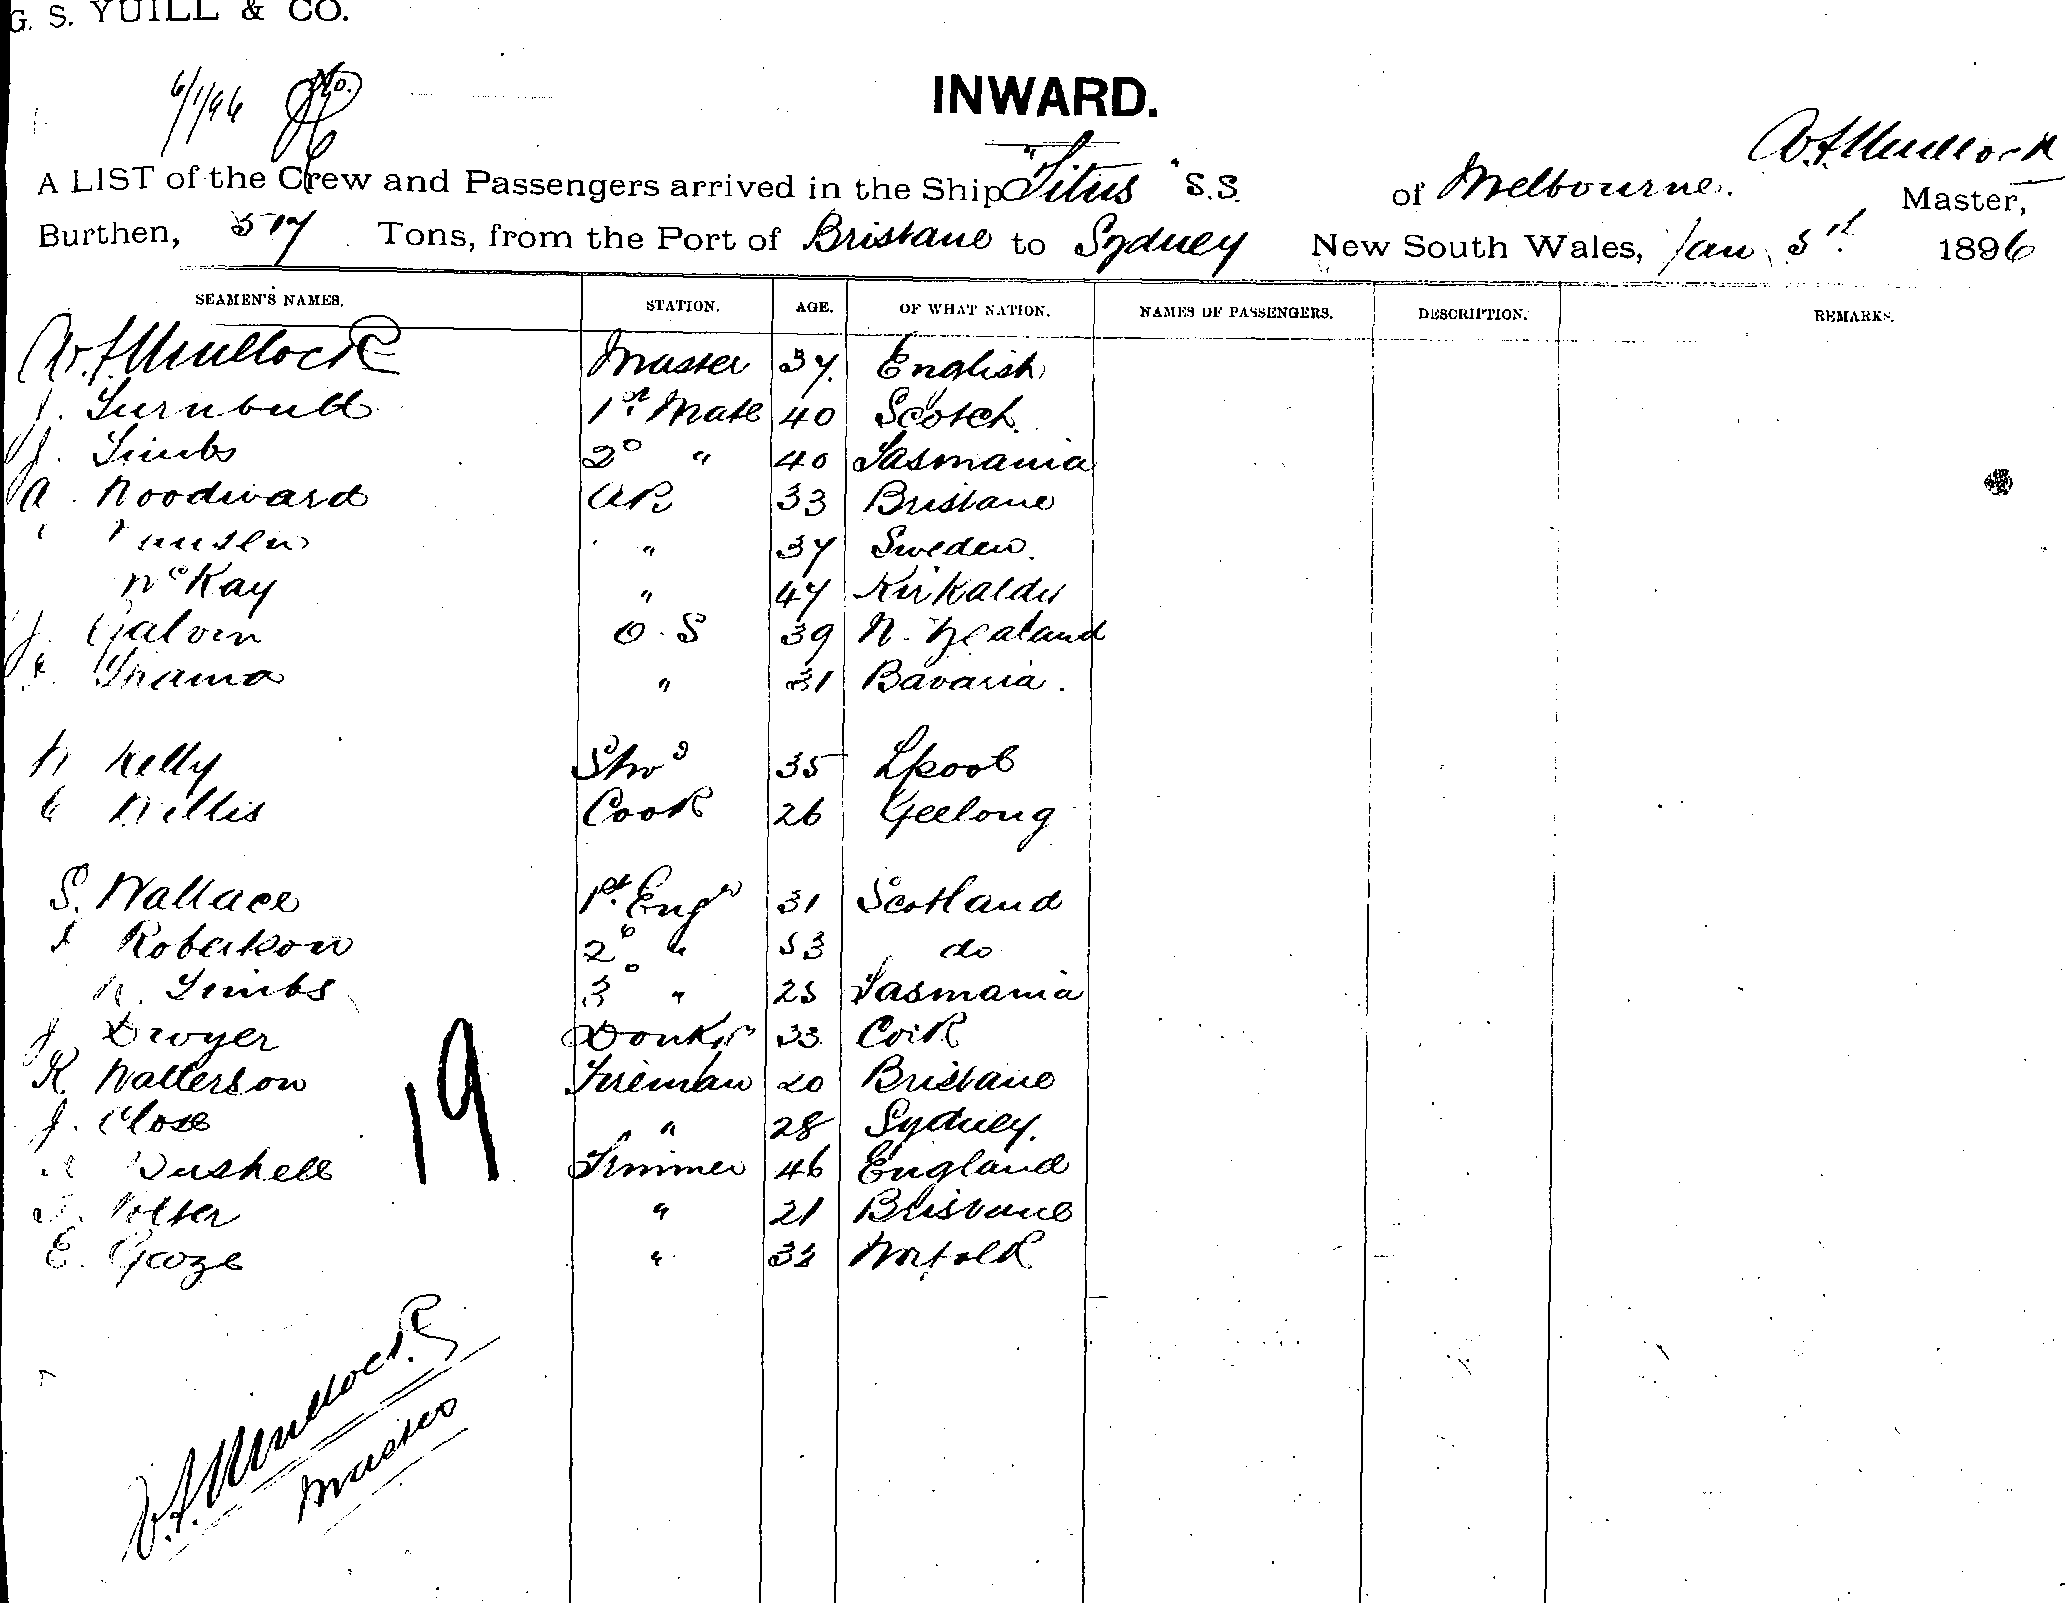 G. S. YUILL & CO.
6/1/96
INWARD.
W.F. Mullock
A LIST of the Crew and Passengers arrived in the Ship "Titus" S.S. of Melbourne. Master,
Burthen, 517 Tons, from the Port of Brisbane to Sydney New South Wales, Jan 5th 1896
SEAMEN'S NAMES. STATION. AGE. OF WHAT NATION. NAMES OF PASSENGERS. DESCRIPTION. REMARKS.
W.F. Mullock Master 37 English
J. Turnbull 1st Mate 40 Scotch
J. Timbs 2° " 40 Tasmania
A. Woodward AB 33 Brisbane
" 37 Sweden.
McKay " 47 Kirkaldy
J. Galvin O.S 39 N. Zealand
Thama " 31 Bavaria.
W Kelly Stwd 35 Lpool
C Willis Cook 26 Geelong
S. Wallace 1st Engr 31 Scotland
Robertson 2° " 53 do
W. Timbs 3° " 25 Tasmania
J Dwyer Donkn 33 Cork
R Watterson Fireman 20 Brisbane
J. Close " 28 Sydney.
Bushell Trimmer 46 England
Potter " 21 Brisbane
E. Goze " 32 Norfolk
19
W.F. Mullock
Master